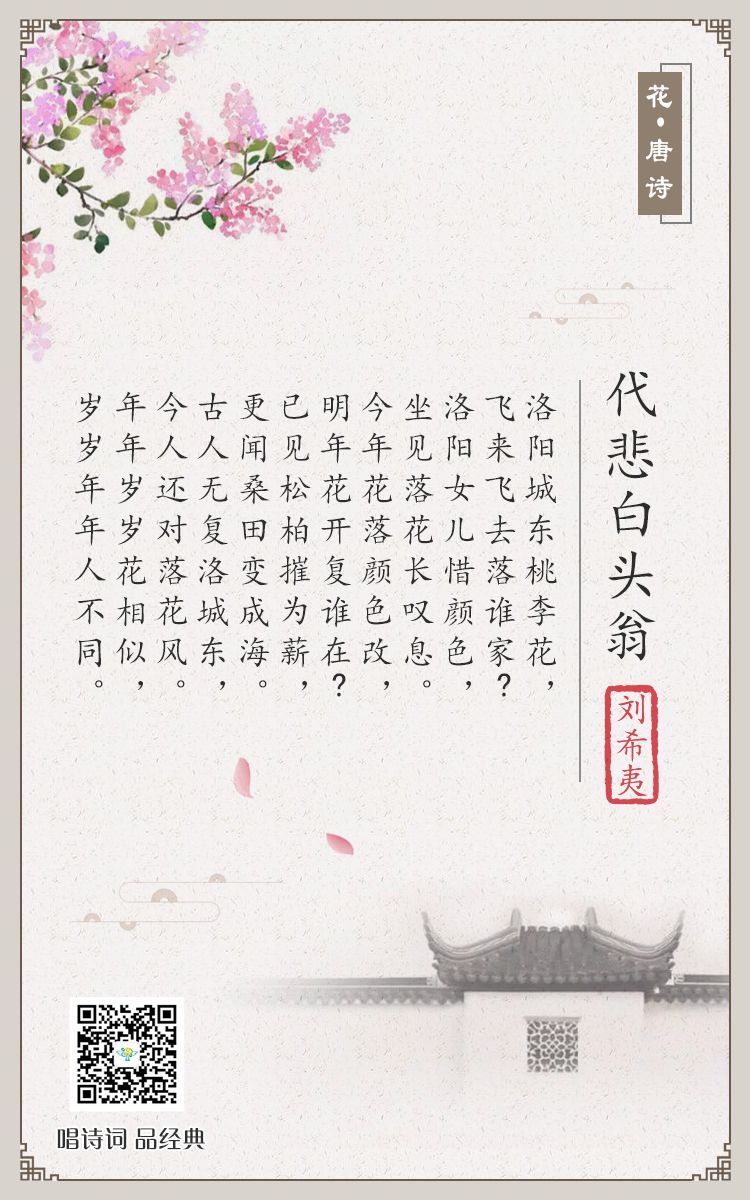 花·唐诗
代悲白头翁
刘希夷
洛阳城东桃李花，
飞来飞去落谁家?
洛阳女儿惜颜色，
坐见落花长叹息。
今年花落颜色改，
明年花开复谁在?
已见松柏摧为薪，
更闻桑田变成海。
古人无复洛城东，
今人还对落花风。
年年岁岁花相似，
岁岁年年人不同。
唱诗词 品经典